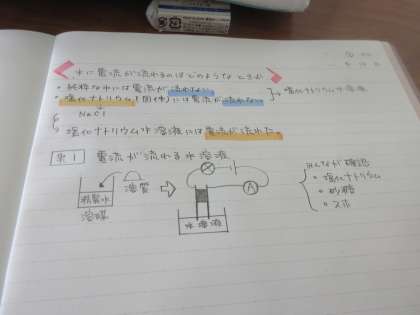 水に電流が流れるのはどのようなときか
・純粋な水には電流が流れない
・塩化ナトリウム(固体)には電流が流れない
塩化ナトリウム水溶液
NaCl
塩化ナトリウム水溶液には電流が流れた。
実1 電流が流れる水溶液
溶質
精製水
溶媒
A
水溶液
みんなが確認
・塩化ナトリウム
・砂糖